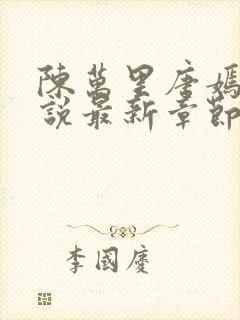 陳萬里唐嫣
說最新章節
李國慶